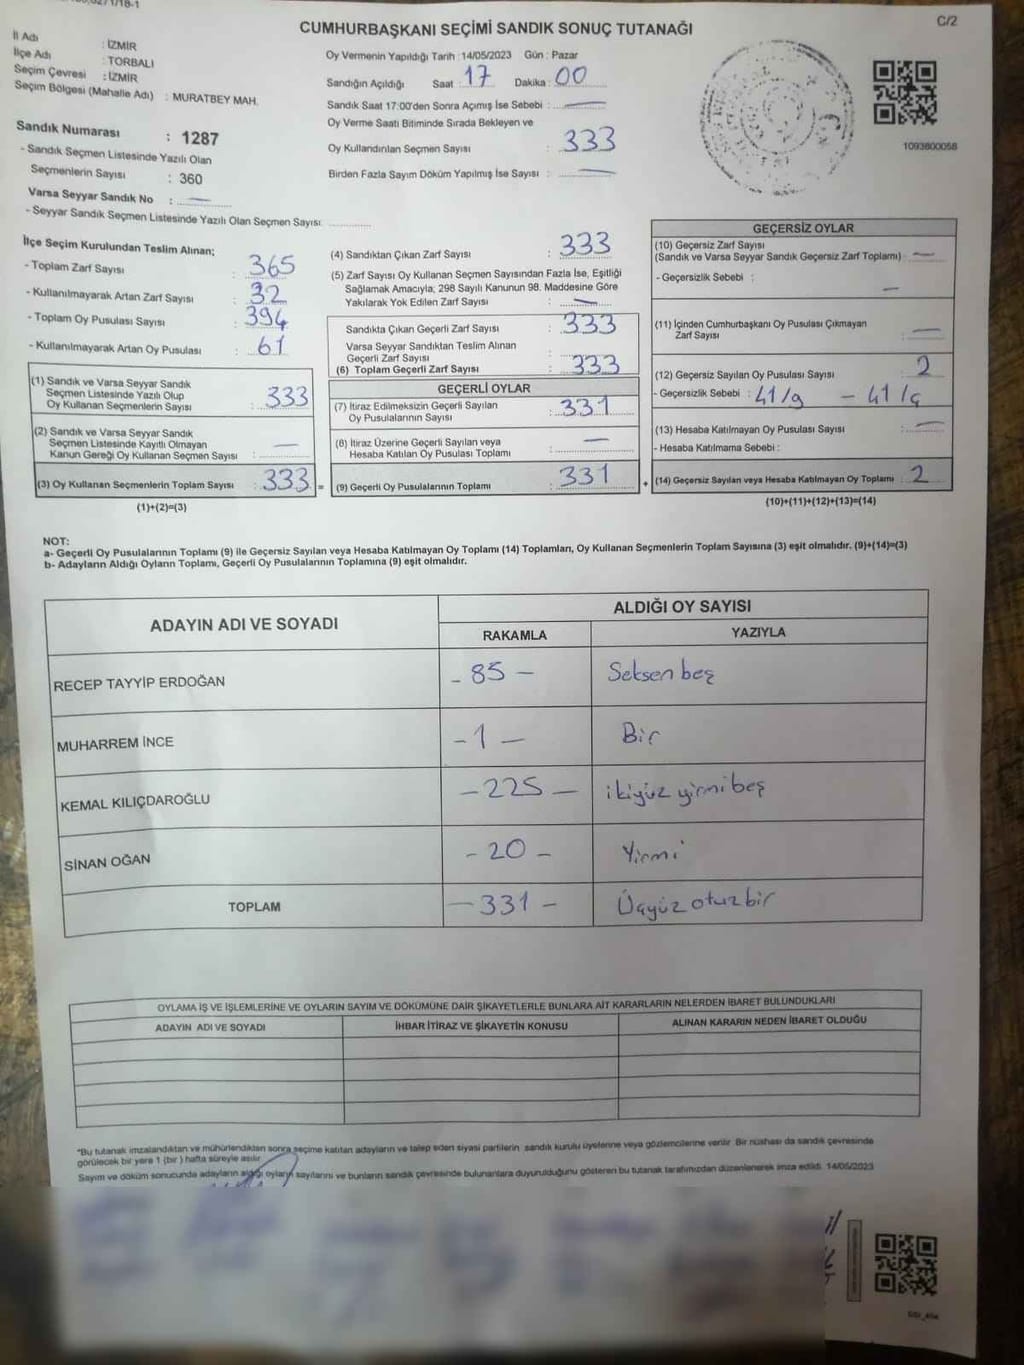 CUMHURBAŞKANI SEÇİMİ SANDIK SONUÇ TUTANAĞI
C/2
İl Adı : İZMİR
İlçe Adı : TORBALI
Seçim Çevresi : İZMİR
Seçim Bölgesi (Mahalle Adı) : MURATBEY MAH.
Sandık Numarası : 1287
- Sandık Seçmen Listesinde Yazılı Olan
Seçmenlerin Sayısı : 360
Varsa Seyyar Sandık No : —
- Seyyar Sandık Seçmen Listesinde Yazılı Olan Seçmen Sayısı:
Oy Vermenin Yapıldığı Tarih : 14/05/2023 Gün : Pazar
Sandığın Açıldığı Saat : 17 Dakika : 00
Sandık Saat 17:00'den Sonra Açımış İse Sebebi : —
Oy Verme Saati Bitiminde Sırada Bekleyen ve
Oy Kullandırılan Seçmen Sayısı : 333
Birden Fazla Sayım Döküm Yapılmış İse Sayısı : —
1093800058
İlçe Seçim Kurulundan Teslim Alınan;
- Toplam Zarf Sayısı : 365
- Kullanılmayarak Artan Zarf Sayısı : 32
- Toplam Oy Pusulası Sayısı : 394
- Kullanılmayarak Artan Oy Pusulası : 61
(1) Sandık ve Varsa Seyyar Sandık
Seçmen Listesinde Yazılı Olup
Oy Kullanan Seçmenlerin Sayısı : 333
(2) Sandık ve Varsa Seyyar Sandık
Seçmen Listesinde Kayıtlı Olmayan
Kanun Gereği Oy Kullanan Seçmen Sayısı : —
(3) Oy Kullanan Seçmenlerin Toplam Sayısı : 333 =
(1)+(2)=(3)
(4) Sandıktan Çıkan Zarf Sayısı : 333
(5) Zarf Sayısı Oy Kullanan Seçmen Sayısından Fazla İse, Eşitliği
Sağlamak Amacıyla; 298 Sayılı Kanunun 98. Maddesine Göre
Yakılarak Yok Edilen Zarf Sayısı : —
Sandıkta Çıkan Geçerli Zarf Sayısı : 333
Varsa Seyyar Sandıktan Teslim Alınan
Geçerli Zarf Sayısı :
(6) Toplam Geçerli Zarf Sayısı : 333
GEÇERLİ OYLAR
(7) İtiraz Edilmeksizin Geçerli Sayılan
Oy Pusulalarının Sayısı : 331
(8) İtiraz Üzerine Geçerli Sayılan veya
Hesaba Katılan Oy Pusulası Toplamı : —
(9) Geçerli Oy Pusulalarının Toplamı : 331 +
GEÇERSİZ OYLAR
(10) Geçersiz Zarf Sayısı
(Sandık ve Varsa Seyyar Sandık Geçersiz Zarf Toplamı) : —
- Geçersizlik Sebebi : —
(11) İçinden Cumhurbaşkanı Oy Pusulası Çıkmayan
Zarf Sayısı : —
(12) Geçersiz Sayılan Oy Pusulası Sayısı : 2
- Geçersizlik Sebebi : 41/g - 41/ç
(13) Hesaba Katılmayan Oy Pusulası Sayısı : —
- Hesaba Katılmama Sebebi :
(14) Geçersiz Sayılan veya Hesaba Katılmayan Oy Toplamı : 2
(10)+(11)+(12)+(13)=(14)
NOT:
a- Geçerli Oy Pusulalarının Toplamı (9) ile Geçersiz Sayılan veya Hesaba Katılmayan Oy Toplamı (14) Toplamları, Oy Kullanan Seçmenlerin Toplam Sayısına (3) eşit olmalıdır. (9)+(14)=(3)
b- Adayların Aldığı Oyların Toplamı, Geçerli Oy Pusulalarının Toplamına (9) eşit olmalıdır.
ADAYIN ADI VE SOYADI
ALDIĞI OY SAYISI
RAKAMLA YAZIYLA
RECEP TAYYİP ERDOĞAN - 85 - Seksen beş
MUHARREM İNCE - 1 - Bir
KEMAL KILIÇDAROĞLU - 225 - ikiyüz yirmibeş
SİNAN OĞAN - 20 - Yirmi
TOPLAM - 331 - Üçyüz otuzbir
OYLAMA İŞ VE İŞLEMLERİNE VE OYLARIN SAYIM VE DÖKÜMÜNE DAİR ŞİKAYETLERLE BUNLARA AİT KARARLARIN NELERDEN İBARET BULUNDUKLARI
ADAYIN ADI VE SOYADI İHBAR İTİRAZ VE ŞİKAYETİN KONUSU ALINAN KARARIN NEDEN İBARET OLDUĞU
*Bu tutanak imzalandıktan ve mühürlendikten sonra seçime katılan adayların ve talep eden siyasi partilerin sandık kurulu üyelerine veya gözlemcilerine verilir. Bir nüshası da sandık çevresinde
görülecek bir yere 1 (bir) hafta süreyle asılır.
Sayım ve döküm sonucunda adayların aldığı oyların sayılarını ve bunların sandık çevresinde bulunanlara duyurulduğunu gösteren bu tutanak tarafımızdan düzenlenerek imza edildi. 14/05/2023